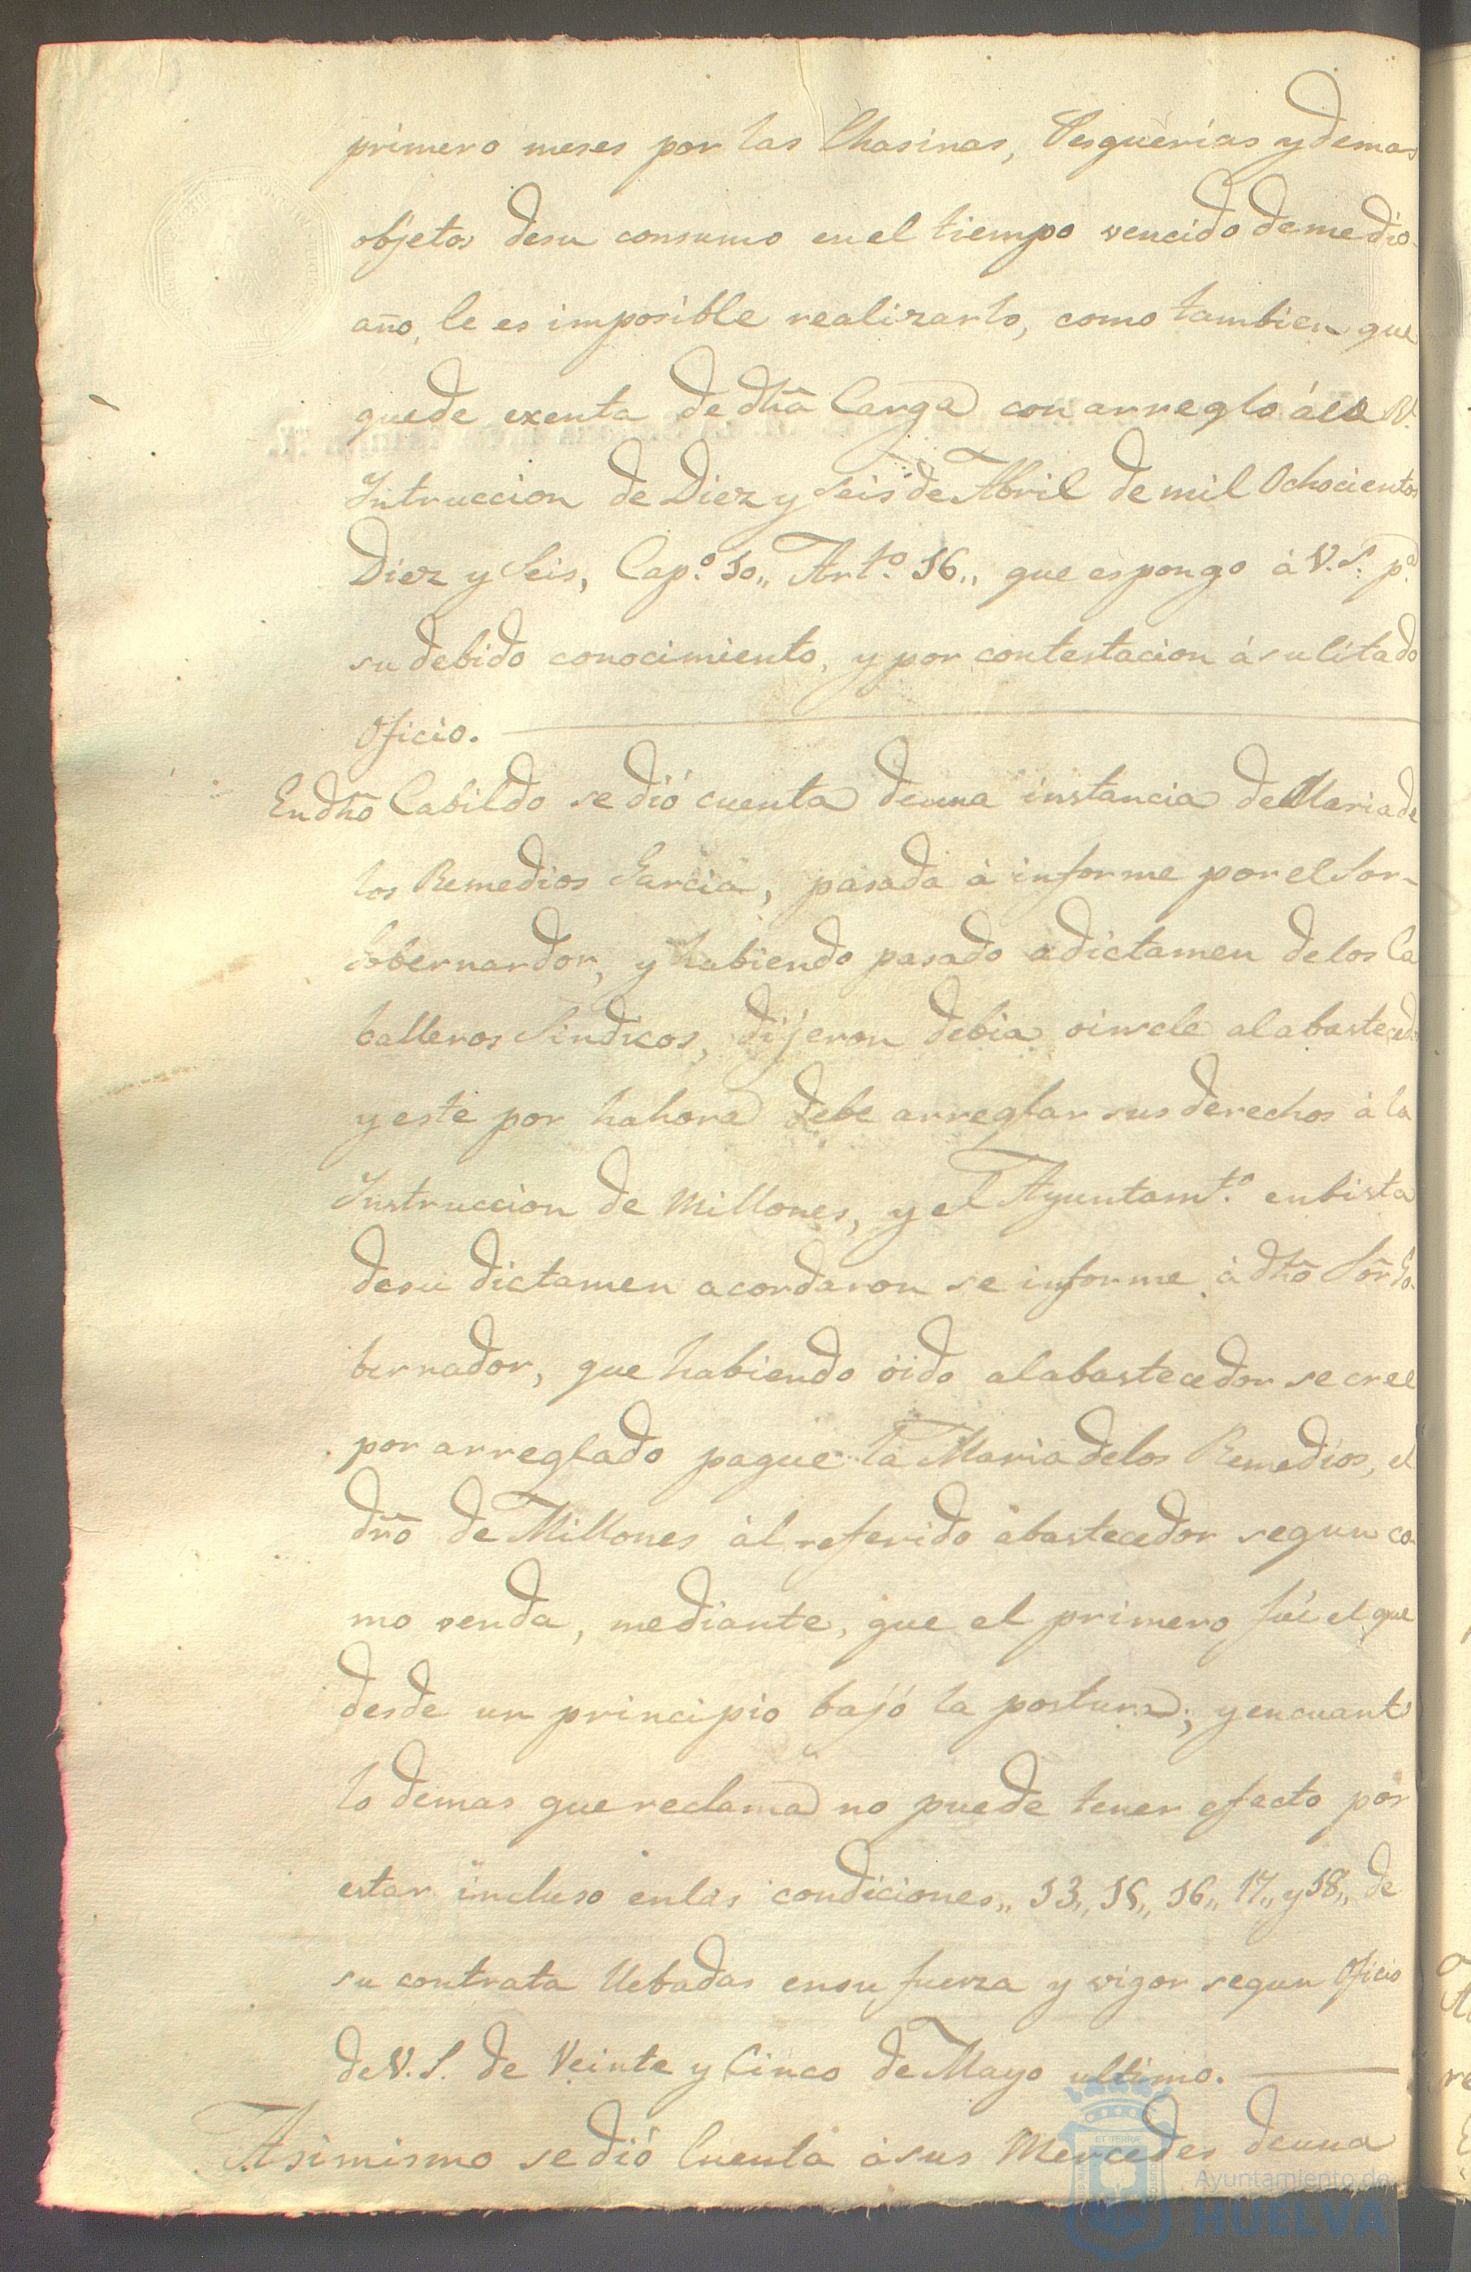 primero meses por las Chasinas, Pesquerias y demas
objetos desu consumo en el tiempo vencido de medio
año, le es imposible realizarlo, como tambien que
quede exenta de dha Carga con arreglo á la Rl.
Intruccion de Diez y Seis de Abril de mil Ochocientos
Diez y Seis, Cap.º 10,, Art.º 16,, que espongo á V.S. p.ª
su debido conocimiento, y por contestacion á su Citado
Oficio.
En dho Cabildo se dió cuenta de una instancia de Maria de
los Remedios Garcia, pasada á informe por el Sor-
Gobernardor, y habiendo pasado a dictamen de los Ca
balleros Sindicos, dijeron debia oirsele al abastecedor
y este por hahora debe arreglar sus derechos á la
Instruccion de Millones, y el Ayuntamt.º en bista
desu dictamen acordaron se informe á dho Sor Go-
bernador, que habiendo oido al abastecedor se cree
por arreglado pague la Maria de los Remedios, el
dro de Millones al referido abastecedor segun co-
mo venda, mediante, que el primero fué el que
desde un principio bajó la postura; y en cuanto
lo demas que reclama no puede tener efecto por
estar incluso en las condiciones,, 13,, 15,, 16,, 17,, y 18,, de
su contrata llebadas ensu fuerza y vigor segun Oficio
de V.S. de Veinte y Cinco de Mayo ultimo.
Asimismo se dió Cuenta á sus Mercedes de una
Ayuntamiento de
HUELVA